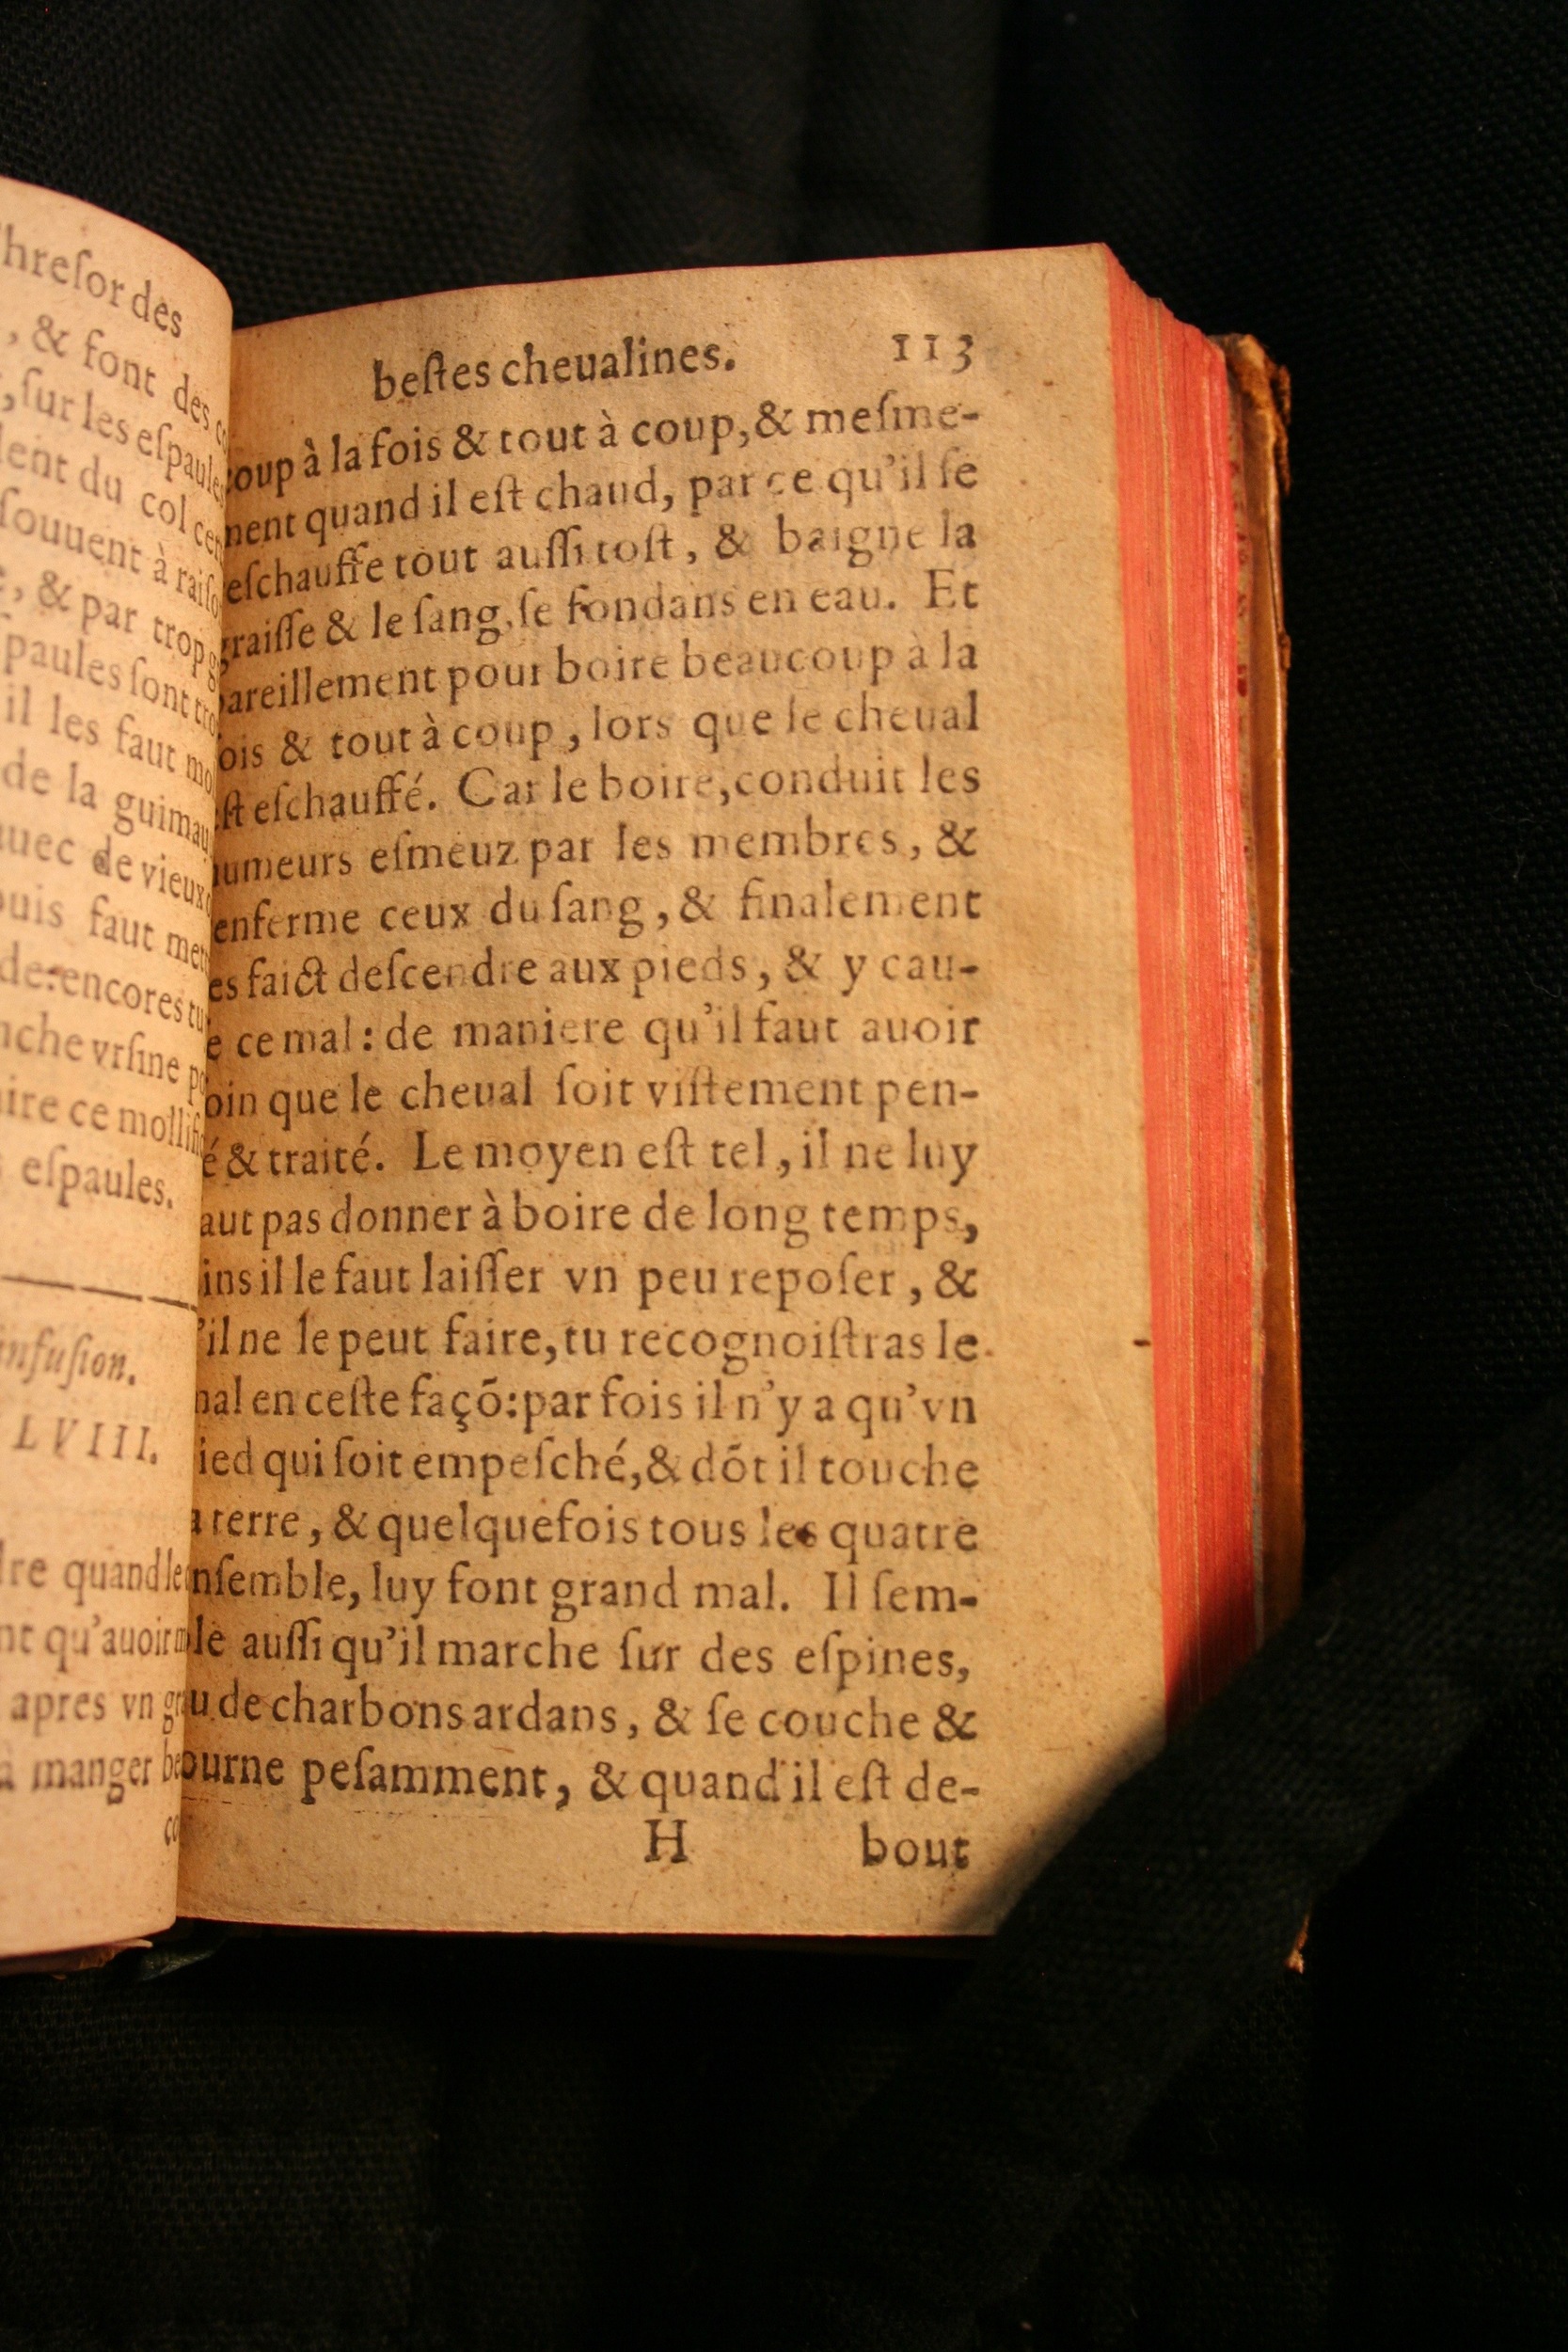 hreſor des
, & font des
, ſur les eſpaules
lent du col
ſouuent à raiſo
, & par trop
paules ſont tro
il les faut mo
de la guimau
uec de vieux
uis faut met
de encores tu
nche vrſine
ire ce mollifi
eſpaules.
infuſion.
LVIII.
dre quand le
nt qu'auoir
apres vn gra
à manger be
co
beſtes cheualines. 113
coup à la fois & tout à coup, & meſme-
ment quand il eſt chaud, par ce qu'il ſe
eſchauffe tout auſſi toſt, & baigne la
graiſſe & le ſang, ſe fondans en eau. Et
pareillement pour boire beaucoup à la
ois & tout à coup, lors que le cheual
ſt eſchauffé. Car le boire, conduit les
umeurs eſmeuz par les membres, &
enferme ceux du ſang, & finalement
es faict deſcendre aux pieds, & y cau-
e ce mal: de maniere qu'il faut auoir
oin que le cheual ſoit viſtement pen-
é & traité. Le moyen eſt tel, il ne luy
aut pas donner à boire de long temps,
ins il le faut laiſſer vn peu repoſer, &
'il ne le peut faire, tu recognoiſtras le
mal en ceſte façõ: par fois il n'y a qu'vn
ied qui ſoit empeſché, & dõt il touche
a terre, & quelquefois tous les quatre
nſemble, luy font grand mal. Il ſem-
ble auſſi qu'il marche ſur des eſpines,
u de charbons ardans, & ſe couche &
ourne peſamment, & quand il eſt de-
H bout